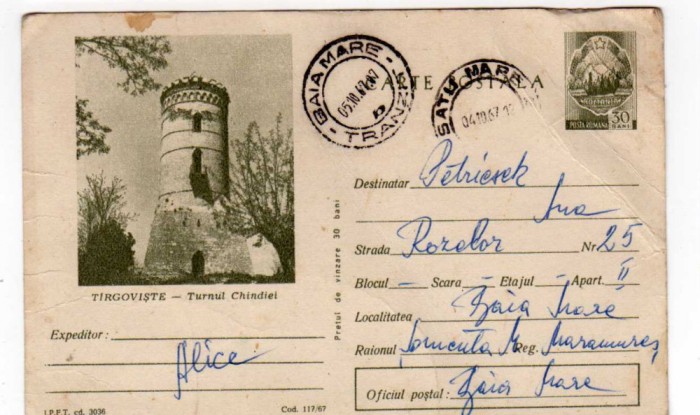 BAIA MARE - TRANZIT
05.10.67-17
b
SATU MARE
04.10.67
CARTE POSTALA
POSTA ROMANA 30 BANI
Destinatar Petricsek
Ana
Strada Rozelor Nr 25
Blocul — Scara — Etajul — Apart. II
Localitatea Baia Mare
Raionul Șomcuta M. Reg. Maramureș
Oficiul poștal: Baia Mare
Prețul de vînzare 30 bani
TÎRGOVIȘTE — Turnul Chindiei
Expeditor:
Alice
I.P.F.T. cd. 3036 Cod. 117/67